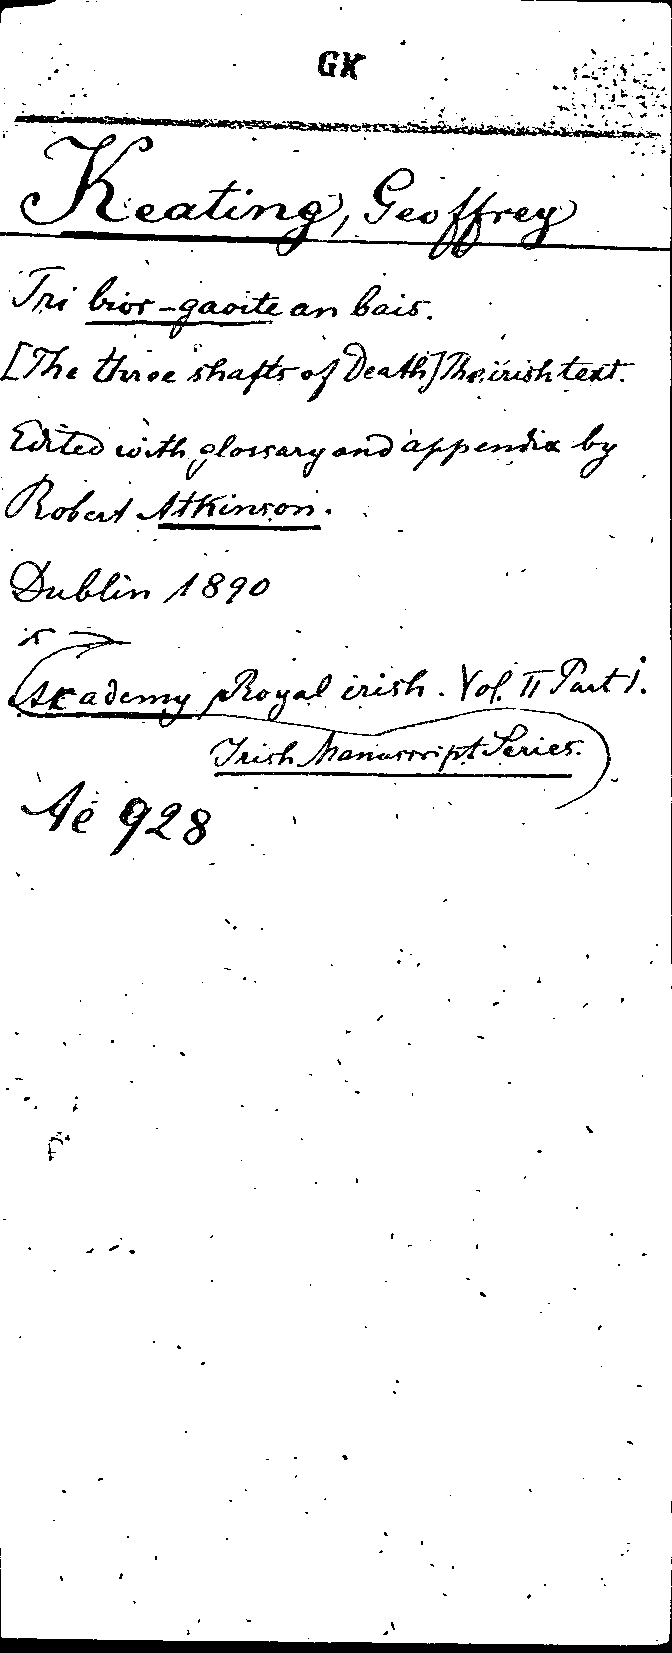 GK
Keating, Geoffrey
Tri bior-gaoite an bais.
[The three shafts of Death] The irish text.
Edited with glossary and appendix by
Robert Atkinson.
Dublin 1890
Academy Royal irish. Vol. II Part 1.
Irish Manuscript Series.
Ae 928